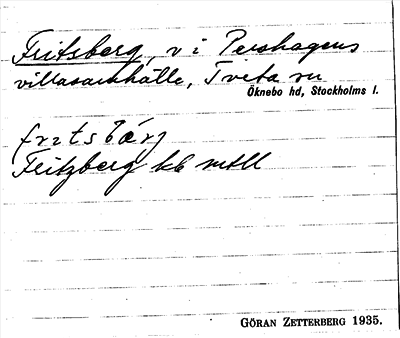 Fritsberg, v i Pershagens
villasamhälle, Tveta sn
Öknebo hd, Stockholms l.
Fritzberg
GÖRAN ZETTERBERG 1935.